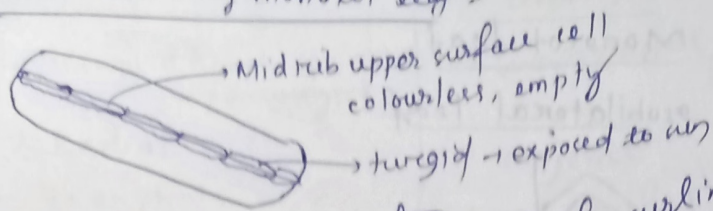 Midrib upper surface cell
colourless, empty
turgid → exposed to